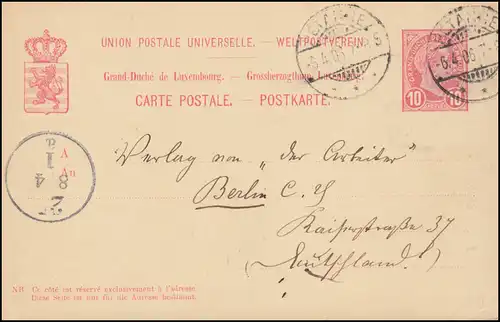 UNION POSTALE UNIVERSELLE. – WELTPOSTVEREIN.
Grand-Duché de Luxembourg. – Grossherzogthum Luxemburg.
CARTE POSTALE. – POSTKARTE.
10 10
-6.4.06
-6.4.06
Verlag von „der Arbeiter"
Berlin C.
Kaiserstraße 37
(Deutschland.)
A
1
Au
8 4
NB. Ce côté est réservé exclusivement à l'adresse.
Diese Seite ist nur für die Adresse bestimmt.